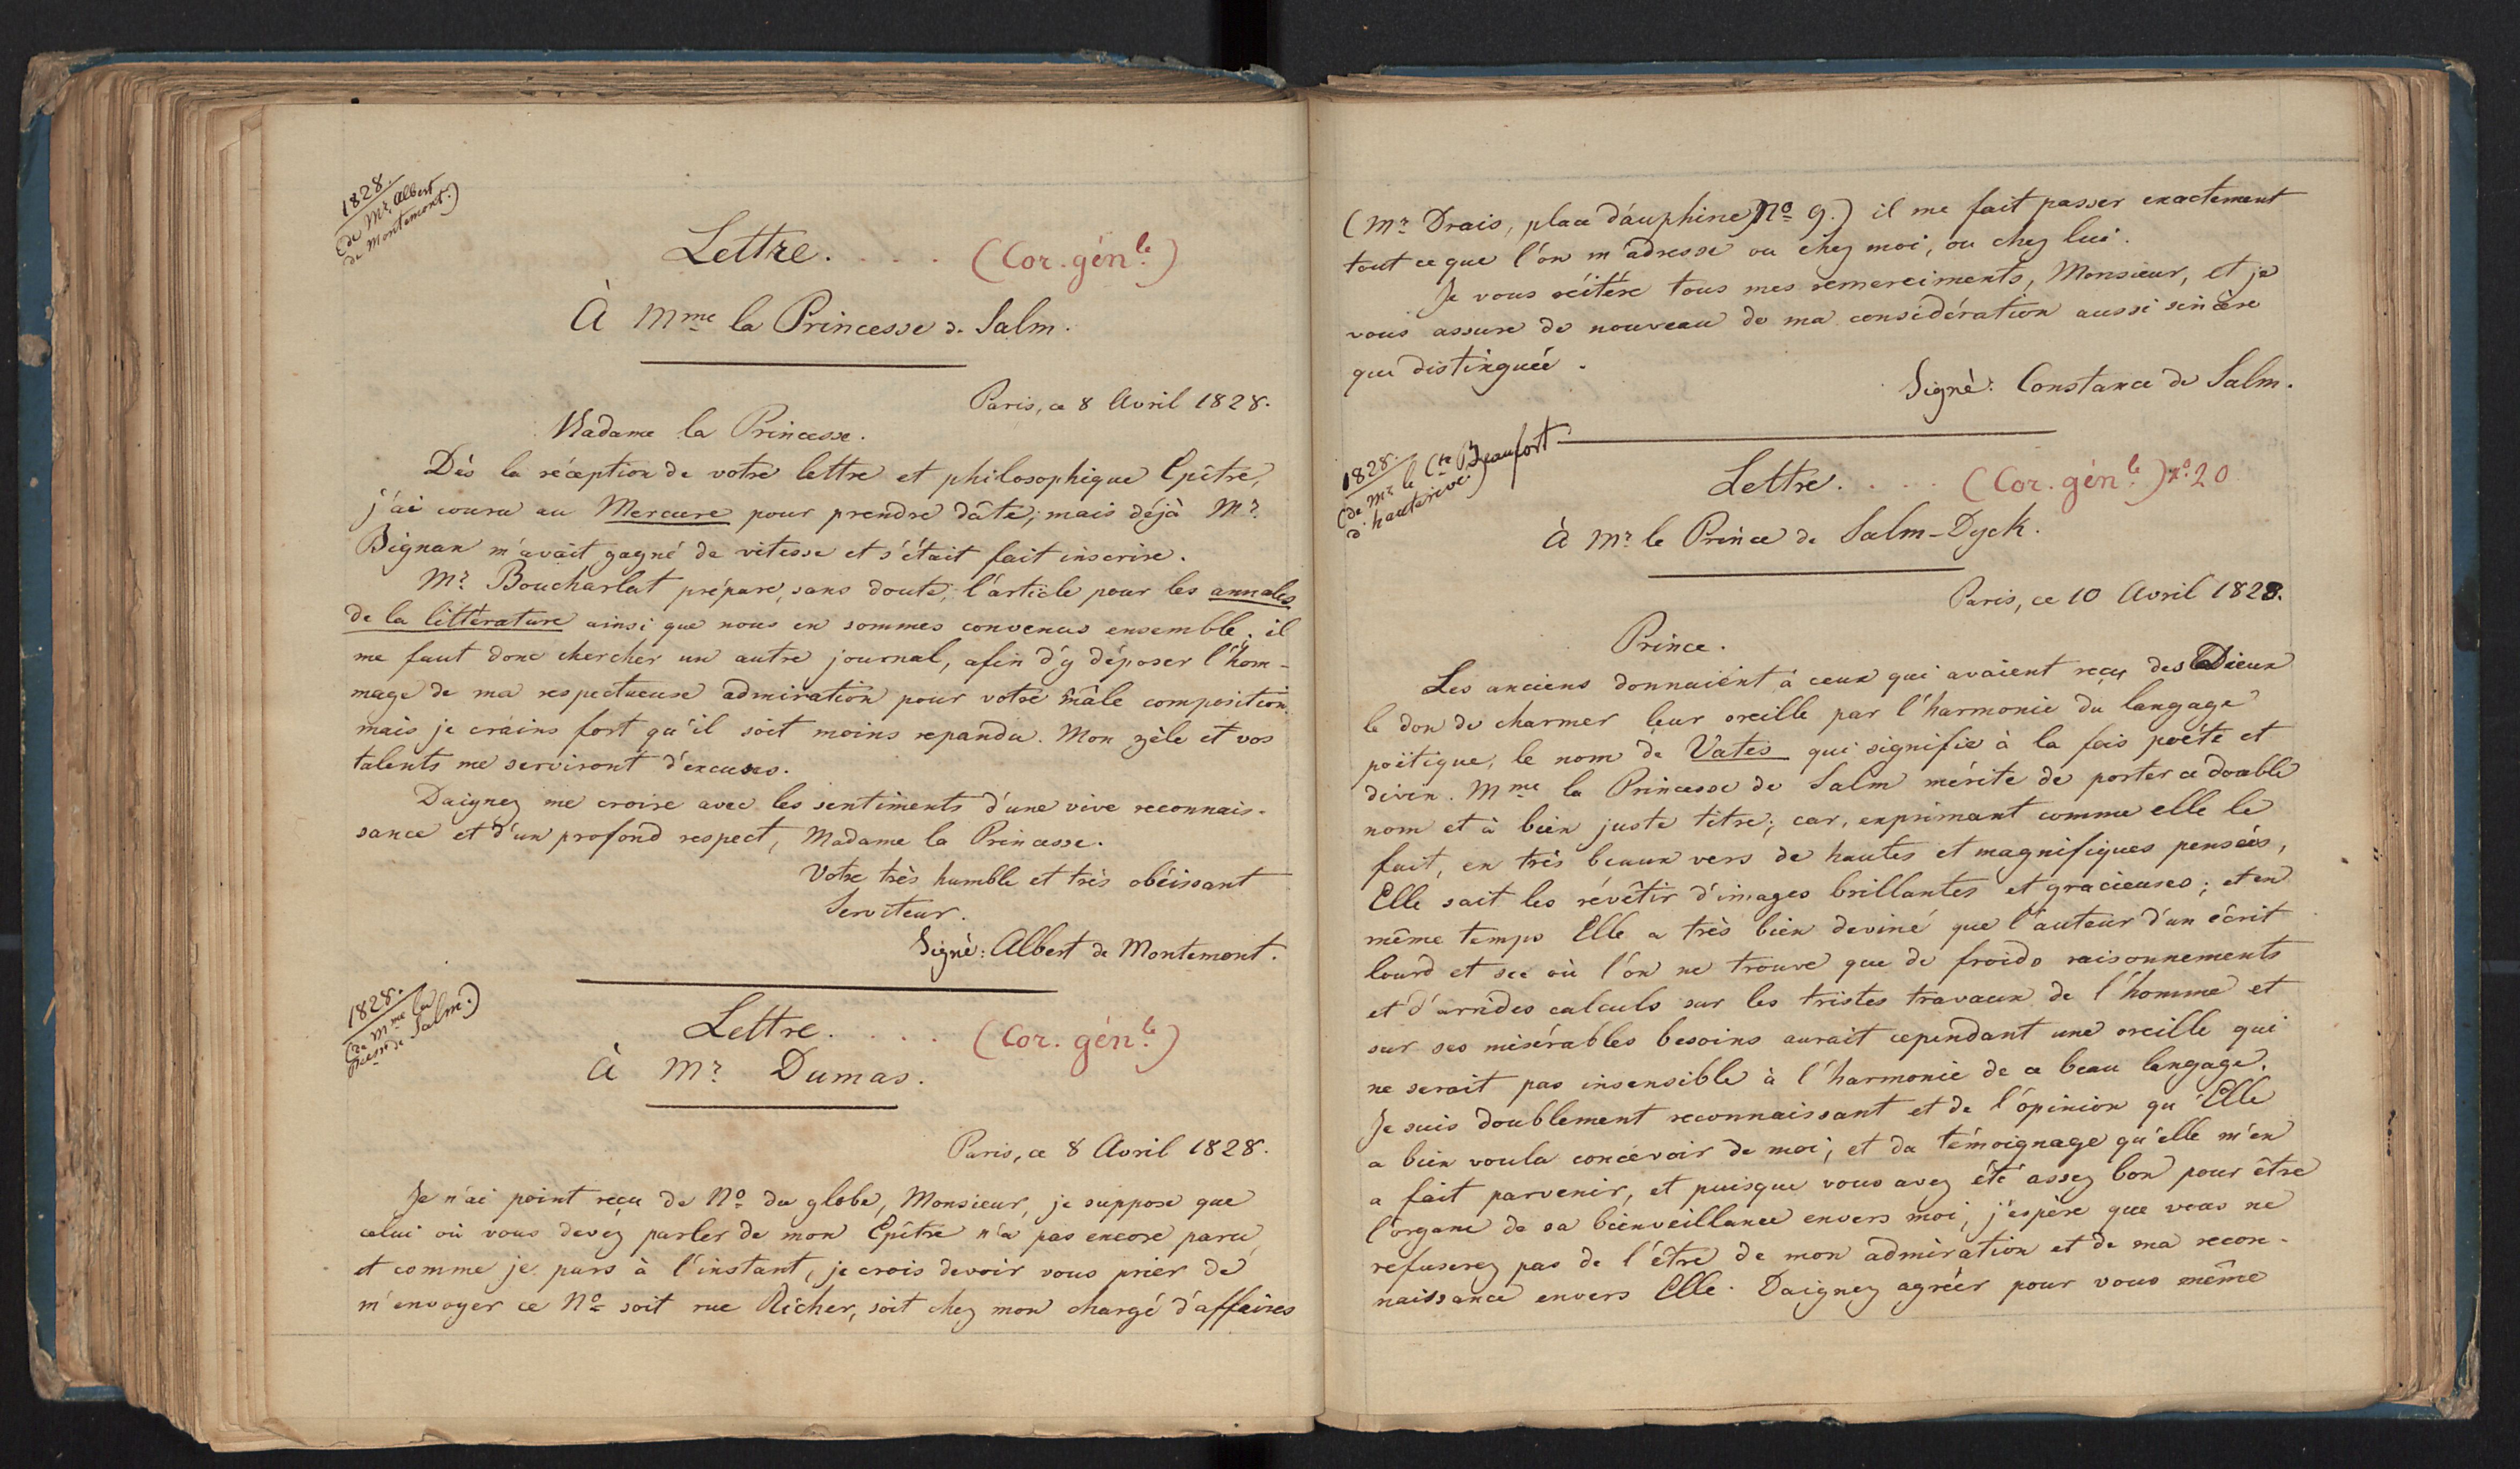 1828.
(de Mr. Albert
de Montemont.)
Lettre. . . . . (Cor. génle.)
À Mme la Princesse de Salm.
Paris, ce 8 Avril 1828.
Madame la Princesse.
Dès la réception de votre lettre et philosophique Epître,
j'ai couru au Mercure pour prendre dâte; mais déjà Mr.
Bignan m'avait gagné de vitesse et s'était fait inscrire.
Mr. Boucharlat prépare, sans doute, l'article pour les annales
de la littérature ainsi que nous en sommes convenus ensemble; il
me faut donc chercher un autre journal, afin d'y déposer l'hom-
mage de ma respectueuse admiration pour votre mâle composition,
mais je crains fort qu'il soit moins repandu. Mon zèle et vos
talents me serviront d'excuses.
Daignez me croire avec les sentiments d'une vive reconnais-
sance et d'un profond respect, Madame la Princesse.
Votre très humble et très obéissant
Serviteur.
Signé: Albert de Montemont.
1828.
(de Mme la
Pcesse de Salm.)
Lettre. . . . . (Cor. génle.)
À Mr. Dumas.
Paris, ce 8 Avril 1828.
Je n'ai point reçu de No du globe, Monsieur, je suppose que
celui où vous devez parler de mon Epître n'a pas encore paru,
et comme je pars à l'instant, je crois devoir vous prier de
m'envoyer ce No soit rue Richer, soit chez mon chargé d'affaires
(Mr. Drais, place dauphine No 9.) il me fait passer exactement
tout ce que l'on m'adresse ou chez moi, ou chez lui.
Je vous réitère tous mes remerciments, Monsieur, et je
vous assure de nouveau de ma considération aussi sincère
que distinguée.
Signé: Constance de Salm.
1828.
(de Mr. le Cte Beaufort
d'hauterive.)
Lettre. . . . . (Cor. génle.) no. 20
À Mr. le Prince de Salm-Dyck.
Paris, ce 10 Avril 1828.
Prince.
Les anciens donnaient à ceux qui avaient reçu des Dieux
le don de charmer leur oreille par l'harmonie du langage
poëtique, le nom de Vates qui signifie à la fois poëte et
divin. Mme la Princesse de Salm mérite de porter ce double
nom et à bien juste titre; car, exprimant comme elle le
fait, en très beaux vers de hautes et magnifiques pensées,
Elle sait les révêtir d'images brillantes et gracieuses; et en
même temps Elle a très bien deviné que l'auteur d'un écrit
lourd et sec où l'on ne trouve que de froids raisonnements
et d'arrides calculs sur les tristes travaux de l'homme et
sur ses misérables besoins aurait cependant une oreille qui
ne serait pas insensible à l'harmonie de ce beau langage.
Je suis doublement reconnaissant et de l'opinion qu'Elle
a bien voulu concevoir de moi, et du témoignage qu'elle m'en
a fait parvenir, et puisque vous avez été assez bon pour être
l'organe de sa bienveillance envers moi, j'espère que vous ne
refuserez pas de l'être de mon admiration et de ma recon-
naissance envers Elle. Daignez agréer pour vous même